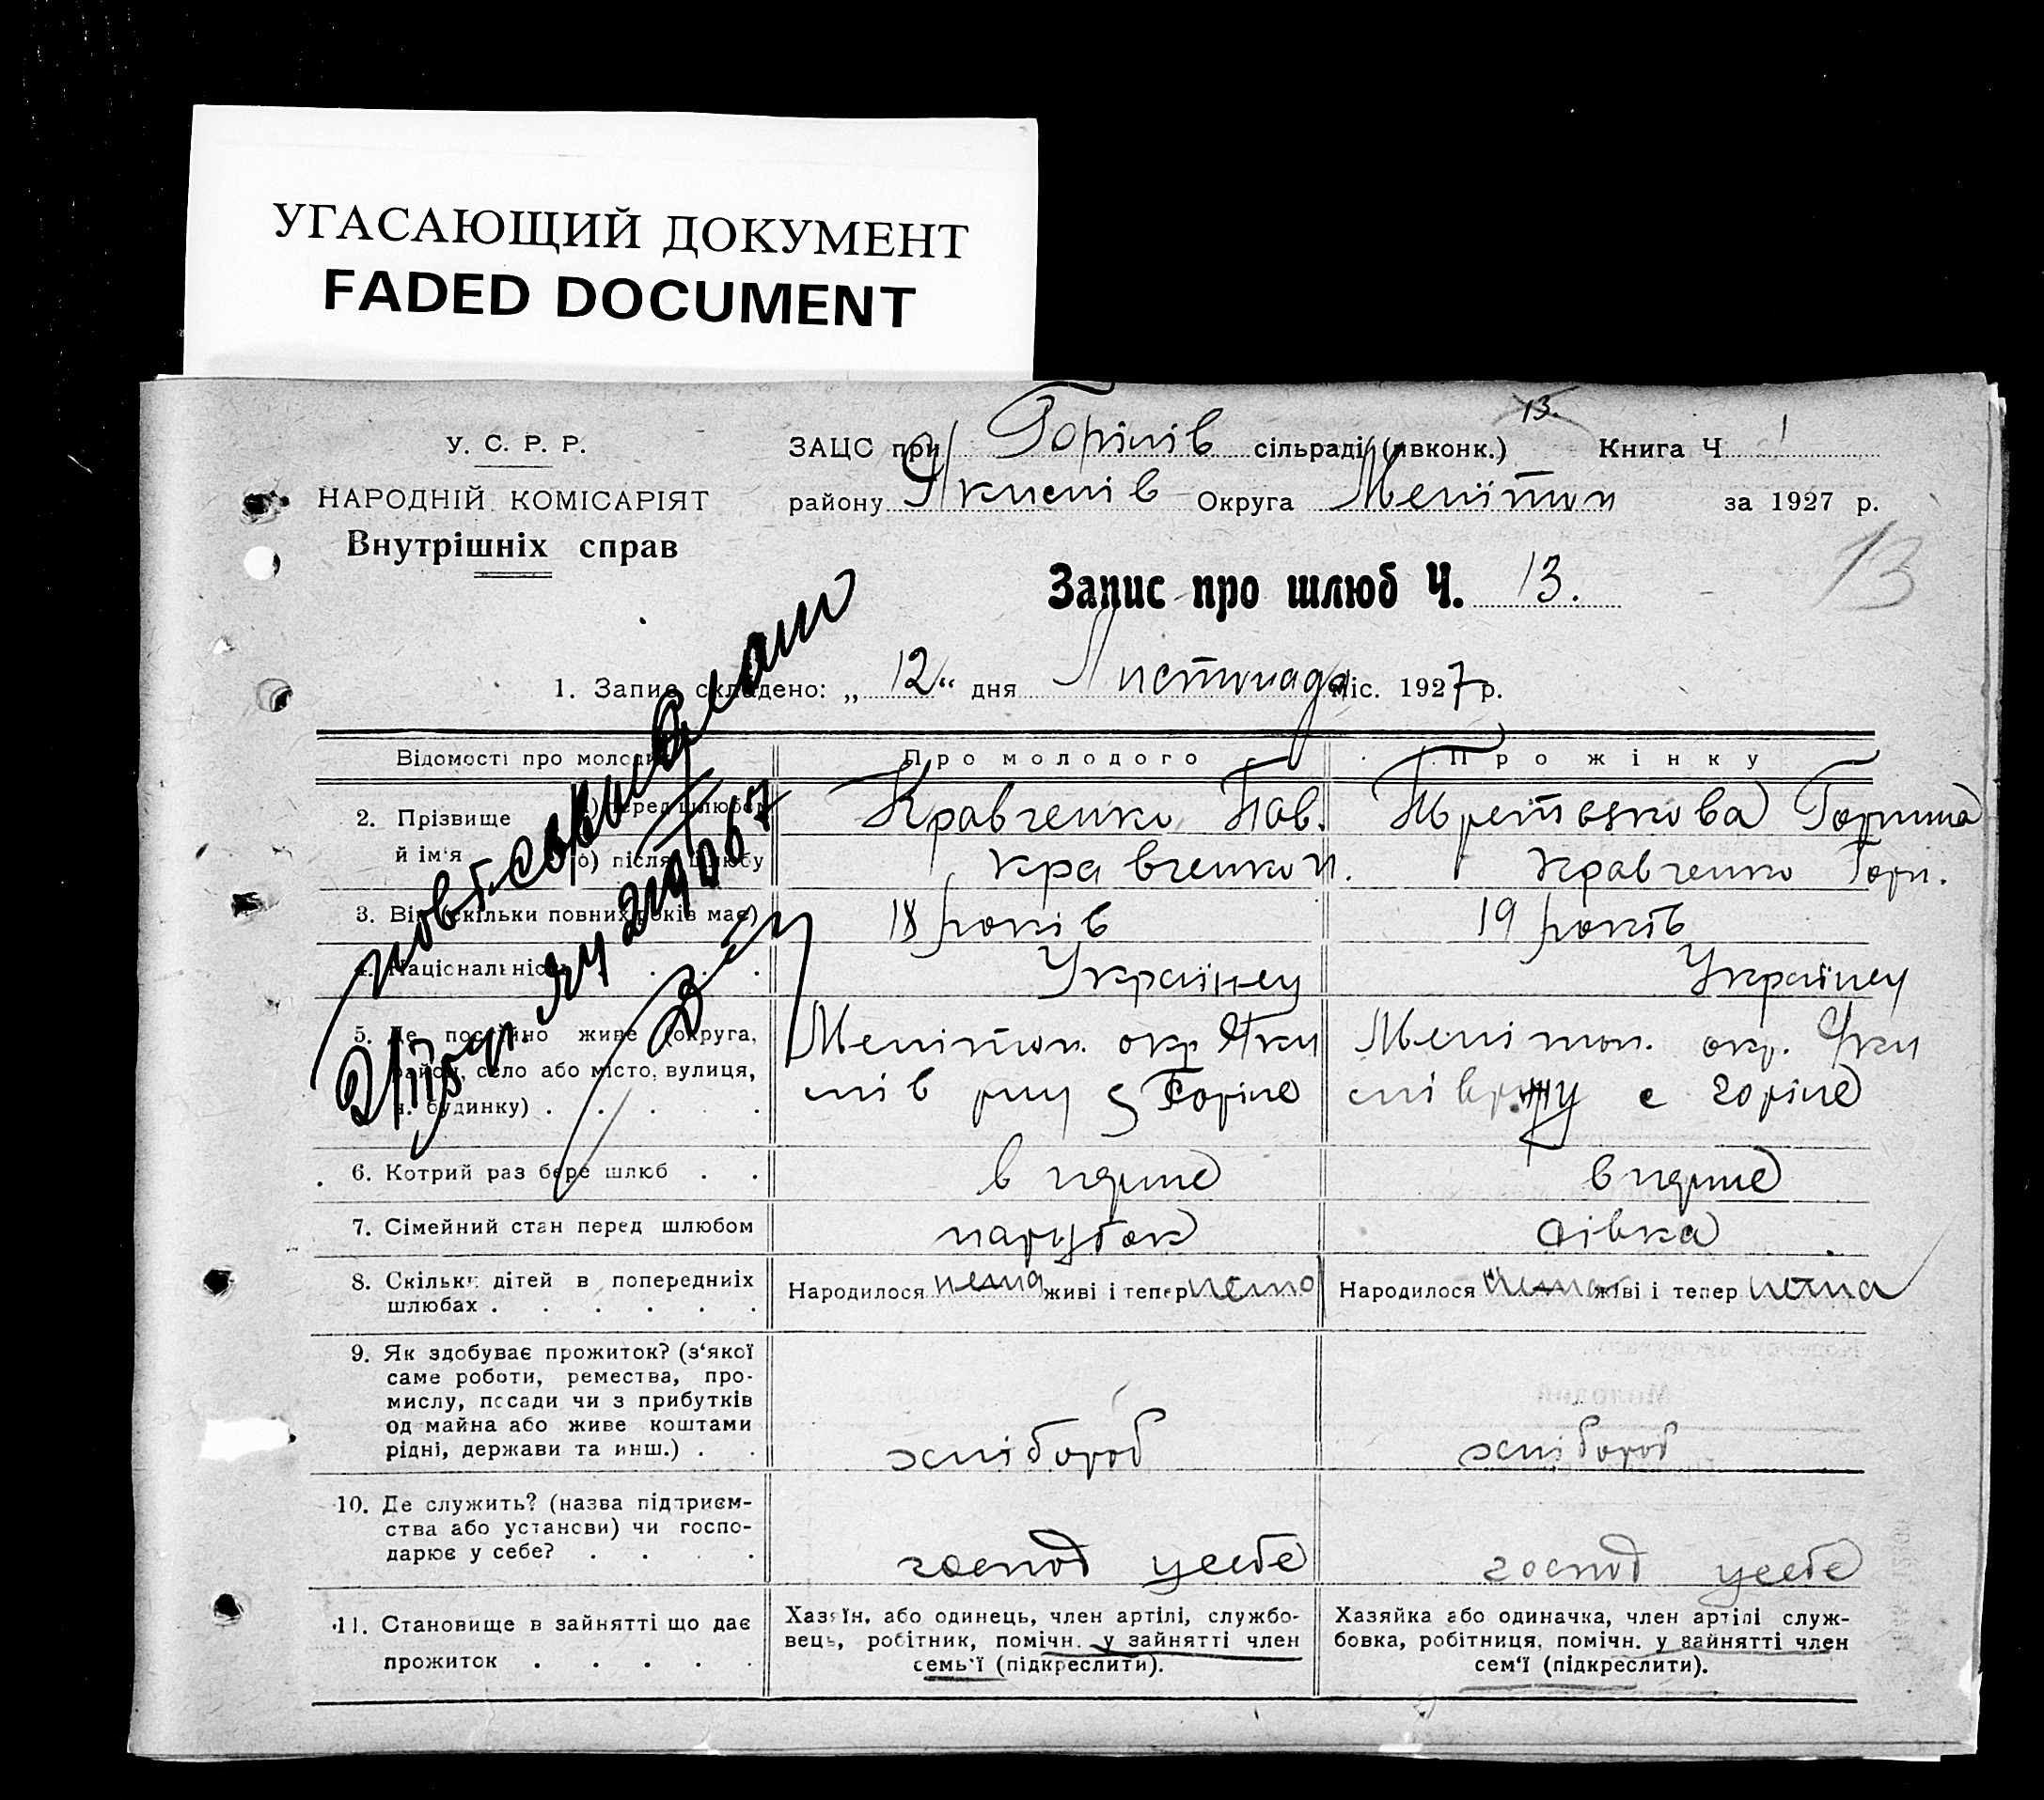 УГАСАЮЩИЙ ДОКУМЕНТ
FADED DOCUMENT
У. С. Р. Р.
НАРОДНІЙ КОМІСАРІЯТ
Внутрішніх справ
13.
ЗАЦС при Горілів сільраді (явконк.) Книга Ч 1
району Якимів Округа Мелітоп за 1927 р.
13
Запис про шлюб Ч. 13.
1. Запис складено: „ 12 “ дня Листопада міс. 1927 р.
Відомості про молодих Про молодого Про жінку
2. Прізвище й ім'я
а) перед шлюбом Кравченко Пав. Третьякова Горпина
б) після шлюбу Кравченко П. Кравченко Горп.
3. Вік (скільки повних років має) 18 років 19 років
4. Національність Українец Українец
5. Де постійно живе (округа, район, село або місто, вулиця, ч. будинку) .
Мелітоп. окр Яки
мів рну с Горіле
Мелітоп. окр. Яки
мів рну с Горіле
6. Котрий раз бере шлюб . . в перше в перше
7. Сімейний стан перед шлюбом парубок дівка
8. Скільки дітей в попередниіх
шлюбах . Народилося нема живі і тепер нема Народилося нема живі і тепер нема
9. Як здобуває прожиток? (з'якої
саме роботи, ремества, про-
мислу, посади чи з прибутків
од майна або живе коштами
рідні, держави та инш.) .
хлібороб хлібороб
10. Де служить? (назва підприєм-
ства або установи) чи госпо-
дарює у себе? .
господ у себе господ у себе
11. Становище в зайнятті що дає
прожиток .
Хазяїн, або одинець, член артілі, службо-
вець, робітник, помічн. у зайнятті член
семь'ї (підкреслити).
Хазяйка або одиначка, член артілі служ-
бовка, робітниця, помічн. у зайнятті член
сем'ї (підкреслити).